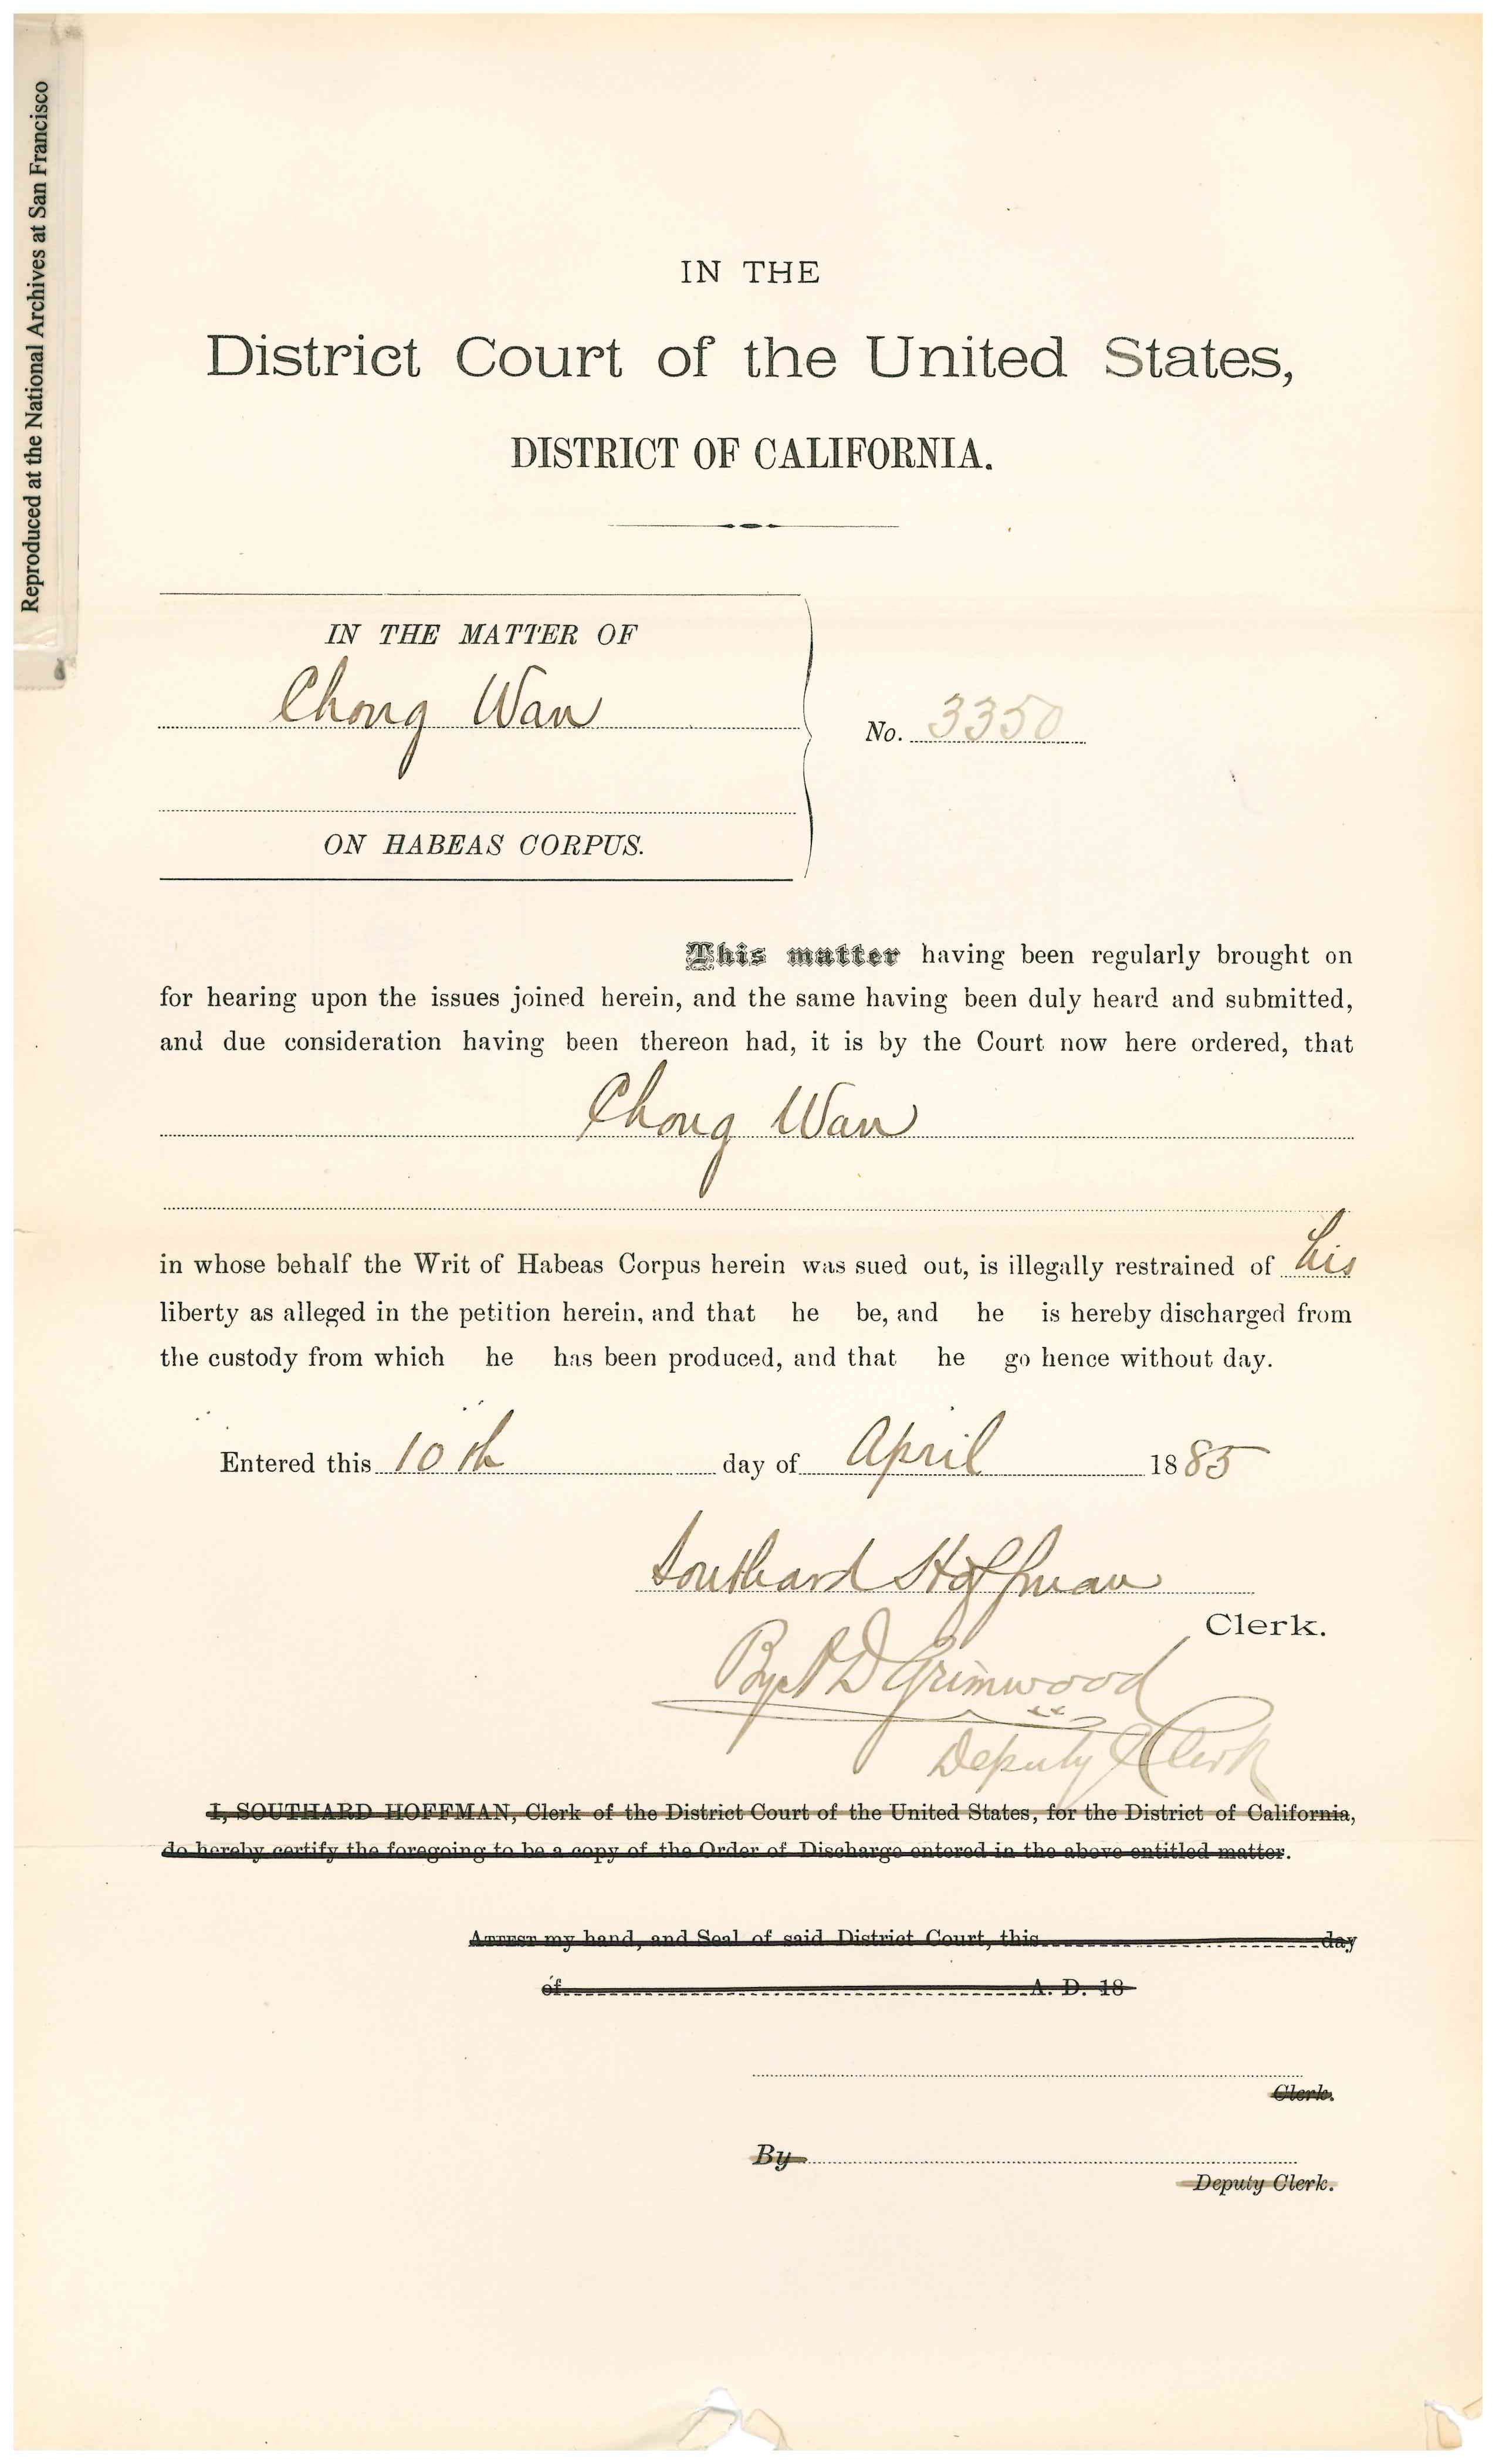 Reproduced at the National Archives at San Francisco
IN THE
District Court of the United States,
DISTRICT OF CALIFORNIA.
IN THE MATTER OF
Chong Wan
No. 3350
ON HABEAS CORPUS.
This matter having been regularly brought on
for hearing upon the issues joined herein, and the same having been duly heard and submitted,
and due consideration having been thereon had, it is by the Court now here ordered, that
Chong Wan
in whose behalf the Writ of Habeas Corpus herein was sued out, is illegally restrained of his
liberty as alleged in the petition herein, and that he be, and he is hereby discharged from
the custody from which he has been produced, and that he go hence without day.
Entered this 10th day of April 1885
Southard Hoffman
Clerk.
By D Grimwood
Deputy Clerk
I, SOUTHARD HOFFMAN, Clerk of the District Court of the United States, for the District of California,
do hereby certify the foregoing to be a copy of the Order of Discharge entered in the above entitled matter.
ATTEST my hand, and Seal of said District Court, this day
of A. D. 18
Clerk.
By
Deputy Clerk.